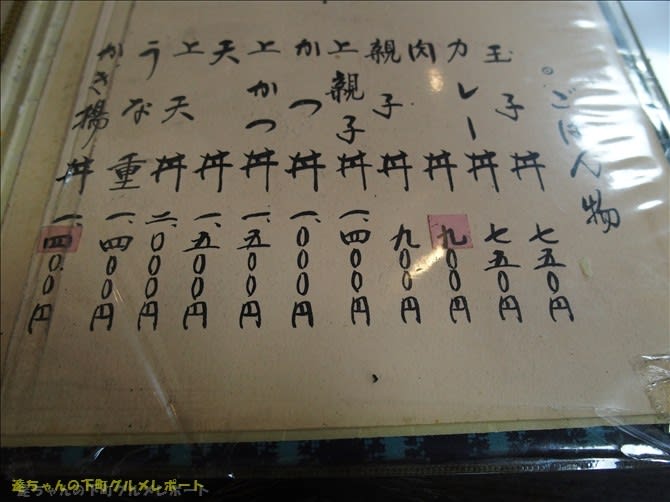 。ごはん物
玉子丼 七五〇円
カレー丼 七五〇円
肉丼 九〇〇円
親子丼 九〇〇円
上親子丼 一、四〇〇円
かつ丼 一、〇〇〇円
上かつ丼 一、五〇〇円
天丼 一、五〇〇円
上天丼 二、〇〇〇円
うな重 一、四〇〇円
かき揚丼 一、四〇〇円
達ちゃんの下町グルメレポート